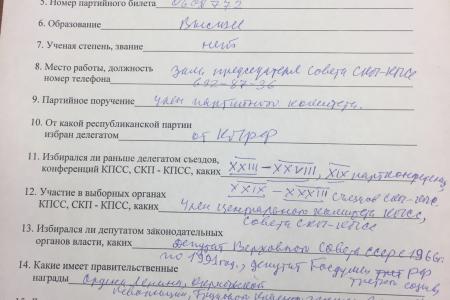 5. Номер партийного билета 0608772
6. Образование Высшее
7. Ученая степень, звание нет
8. Место работы, должность зам. председателя Совета СКП-КПСС
номер телефона 692-87-36
9. Партийное поручение член партийного комитета.
10. От какой республиканской партии
избран делегатом от КПРФ
11. Избирался ли раньше делегатом съездов,
конференций КПСС, СКП - КПСС, каких XXIII – XXVIII, XIX партконференц
XXIX – XXXIII съездов СКП-КПСС
12. Участие в выборных органах
КПСС, СКП - КПСС, каких Член центрального комитета КПСС,
Совета СКП-КПСС
13. Избирался ли депутатом законодательных
органов власти, каких депутат Верховного Совета СССР с 1966г.
по 1991 год., депутат Госдумы РФ
третьего созыва,
14. Какие имеет правительственные
награды Ордена Ленина, Октябрьской
революции, Трудового Красного